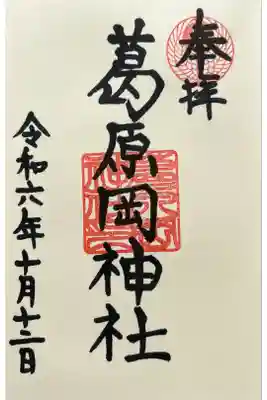 奉拝
葛原岡神社
令和六年十月十二日